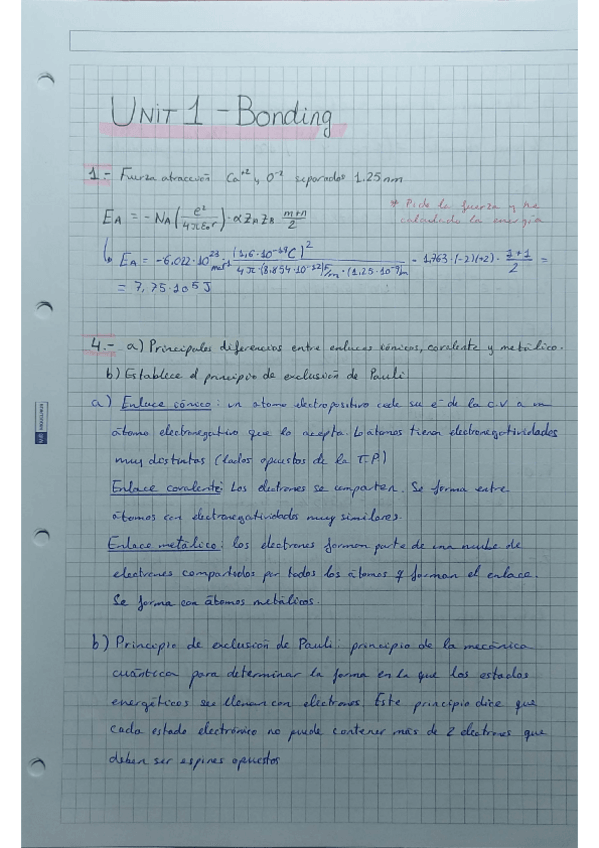 UNIT 1 - Bonding
1.- Fuerza atracción Ca⁺² y O⁻² separados 1.25 nm
* Pide la fuerza y he
calculado la energía
E_A = - N_A (e² / 4πε₀r) · α Z_A Z_B (m+n / 2)
↳ E_A = -6,022·10²³ mol⁻¹ (1,6·10⁻¹⁹C)² / 4π·(8,854·10⁻¹²)F/m·(1,25·10⁻⁹)m · 1,763·(-2)(+2)· (1+1 / 2) =
= 7,75·10⁵ J
4.- a) Principales diferencias entre enlaces iónicos, covalente y metálico.
b) Establece el principio de exclusión de Pauli
a) Enlace iónico: un átomo electropositivo cede su e⁻ de la c.V a un
átomo electronegativo que lo acepta. Lo átomos tienen electronegatividades
muy distintas (lados opuestos de la T.P)
Enlace covalente: Los electrones se comparten. Se forma entre
átomos con electronegatividades muy similares.
Enlace metálico: los electrones forman parte de una nube de
electrones compartidos por todos los átomos y forman el enlace.
Se forma con átomos metálicos.
b) Principio de exclusión de Pauli: principio de la mecánica
cuántica para determinar la forma en la que los estados
energéticos se llenan con electrones. Este principio dice que
cada estado electrónico no puede contener más de 2 electrones que
deben ser espines opuestos